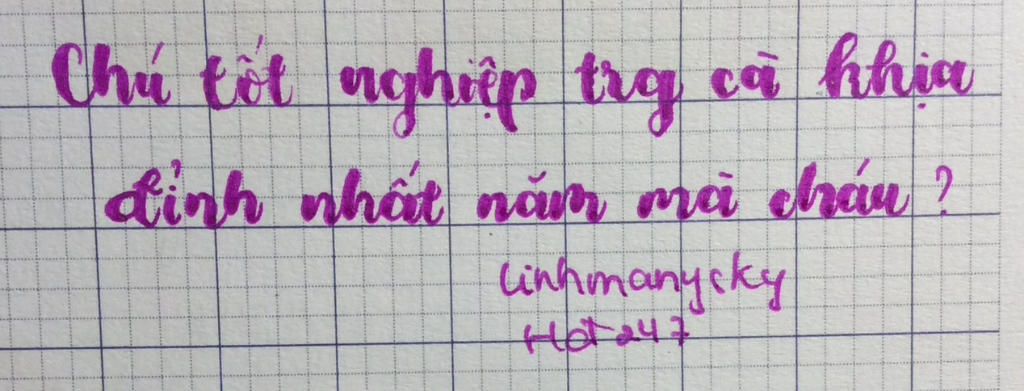 Chú tốt nghiệp trg cà khịa
đỉnh nhất năm mà cháu?
linhmanycky
Hot247